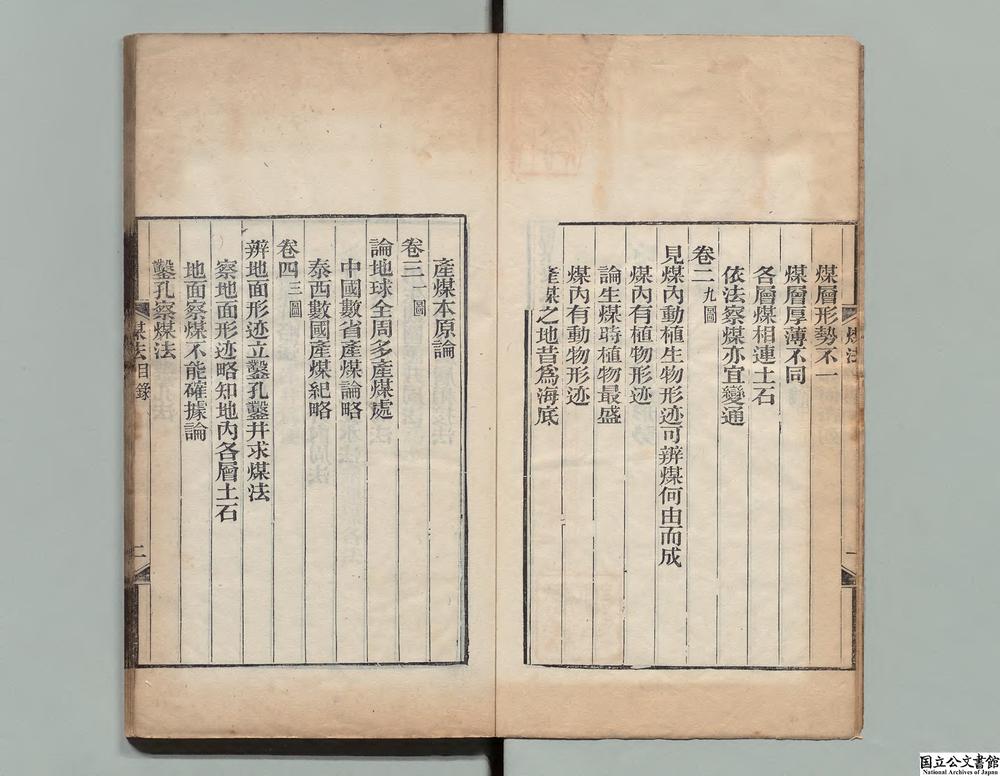 煤層形勢不一
煤層厚薄不同
各層煤相連土石
依法察煤亦宜變通
卷二 九圖
見煤內動植生物形迹可辨煤何由而成
煤內有植物形迹
論生煤時植物最盛
煤內有動物形迹
產煤之地昔爲海底
產煤本原論
卷三 一圖
論地球全周多產煤處
中國數省產煤論略
泰西數國產煤紀略
卷四 三圖
辨地面形迹立鑿孔鑿井求煤法
察地面形迹略知地內各層土石
地面察煤不能確據論
鑿孔察煤法
煤法目錄
二
国立公文書館
National Archives of Japan